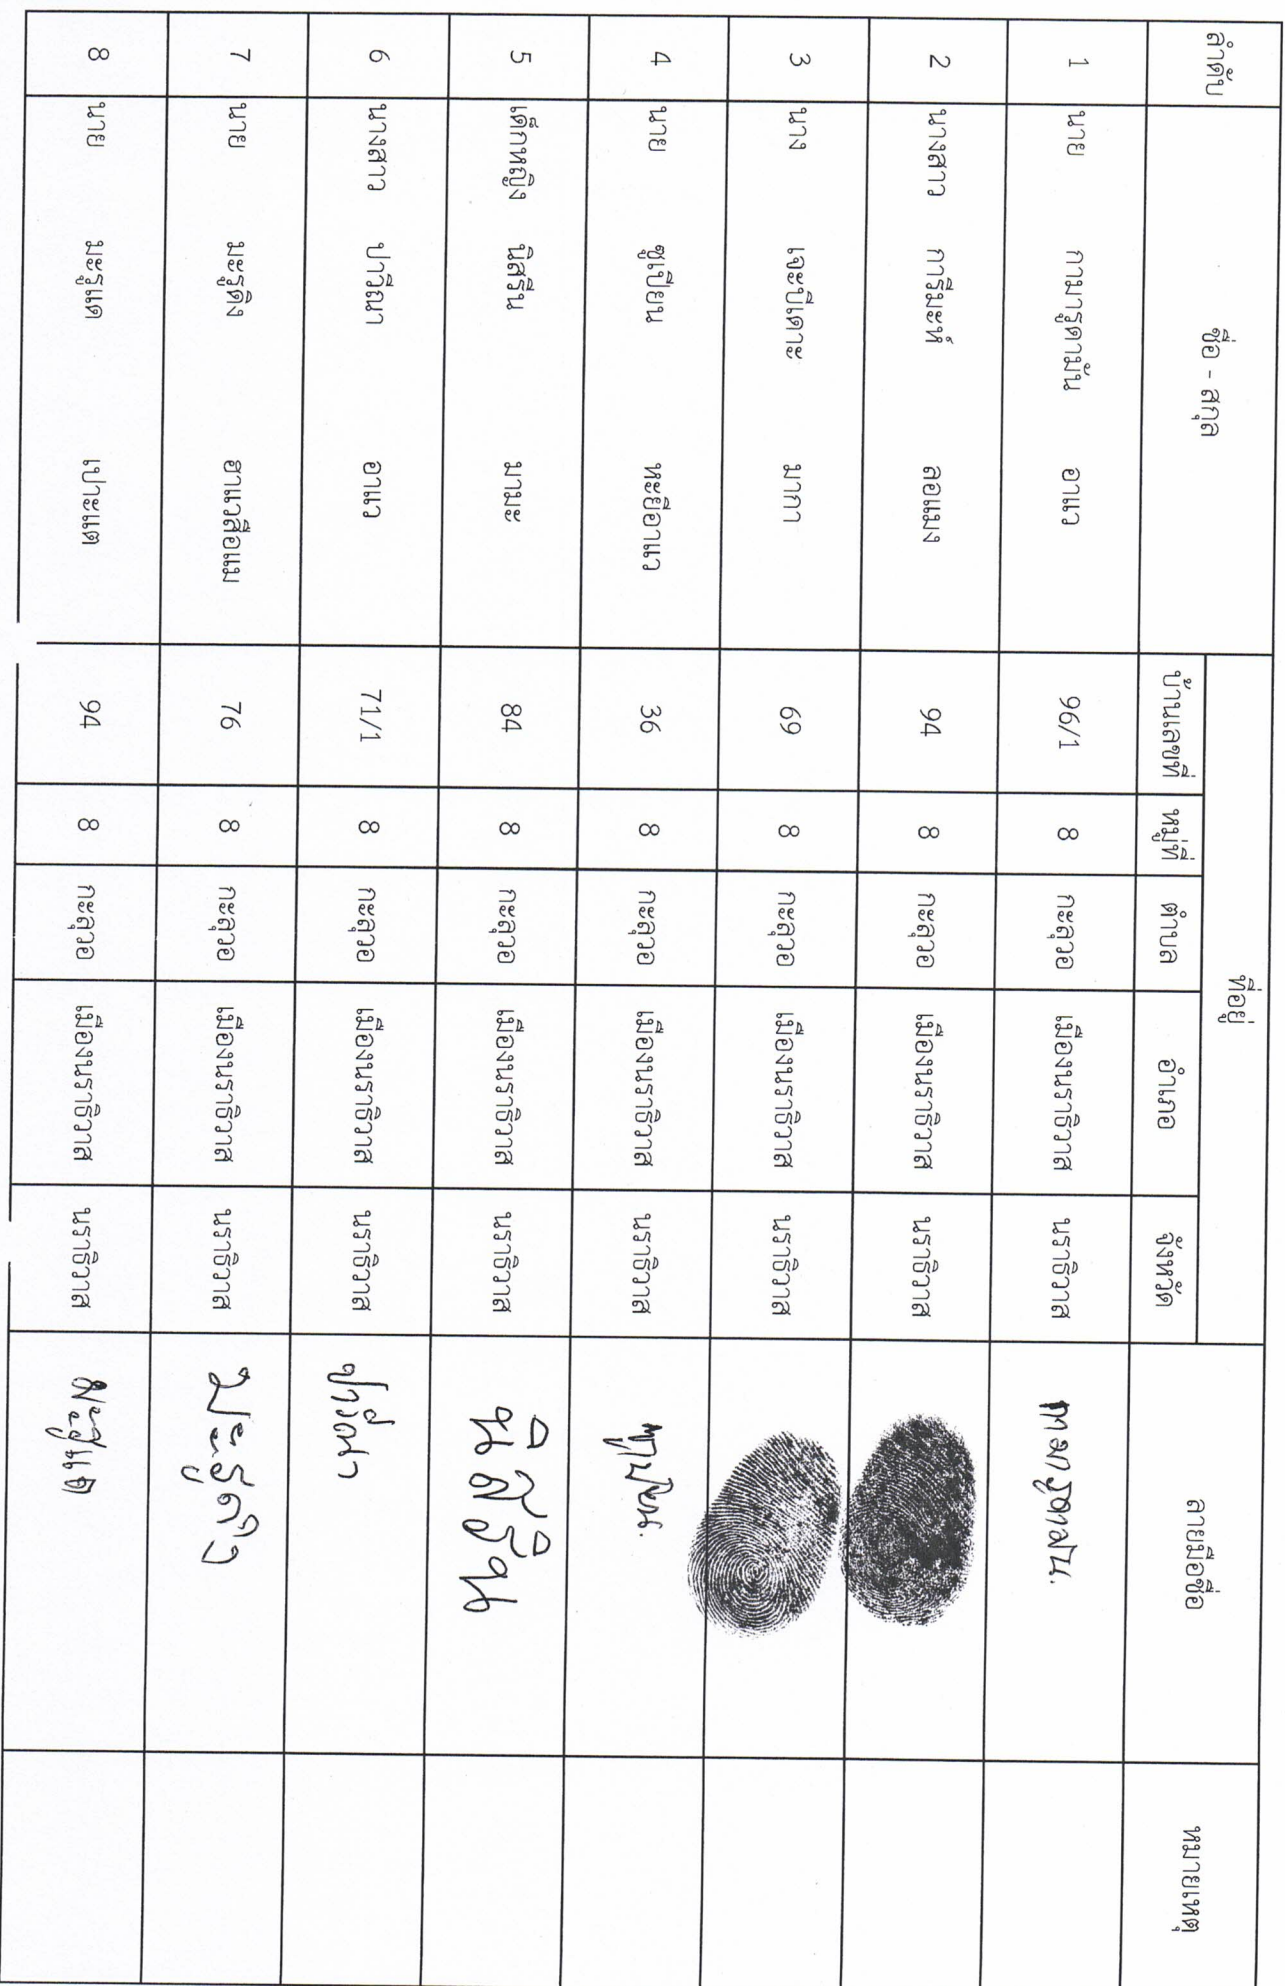 ลำดับ ชื่อ - สกุล ที่อยู่ ลายมือชื่อ หมายเหตุ
บ้านเลขที่ หมู่ที่ ตำบล อำเภอ จังหวัด
1 นาย กามารูดามัน อาแว 96/1 8 กะลุวอ เมืองนราธิวาส นราธิวาส กามารูดามัน.
2 นางสาว การีมะห์ ลอแมง 94 8 กะลุวอ เมืองนราธิวาส นราธิวาส
3 นาง เจะบีเดาะ มากา 69 8 กะลุวอ เมืองนราธิวาส นราธิวาส
4 นาย ซูเปียน หะยีอาแว 36 8 กะลุวอ เมืองนราธิวาส นราธิวาส
5 เด็กหญิง นิสรีน มามะ 84 8 กะลุวอ เมืองนราธิวาส นราธิวาส นิสรีน
6 นางสาว ปาวีณา อาแว 71/1 8 กะลุวอ เมืองนราธิวาส นราธิวาส ปาวีณา
7 นาย มะรูดิง ฮาแวสือแม 76 8 กะลุวอ เมืองนราธิวาส นราธิวาส มะรูดิง
8 นาย มะรูแด เปาะแต 94 8 กะลุวอ เมืองนราธิวาส นราธิวาส มะรูแด